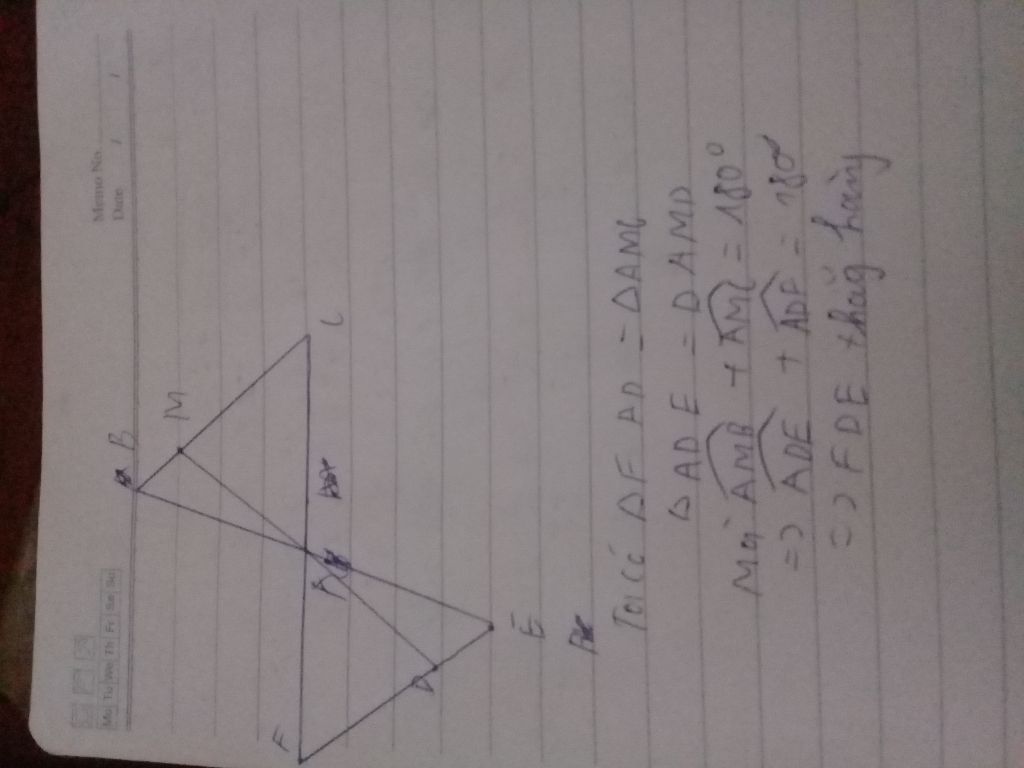 Memo No.
Date / /
Mo Tu We Th Fr Sa Su
B
M
C
A
F
D
E
Ta có ΔFAD = ΔAMC
ΔADE = ΔAMD
Mà AMB + AMC = 180°
=> ADE + ADF = 180°
=> F D E thẳg hàng